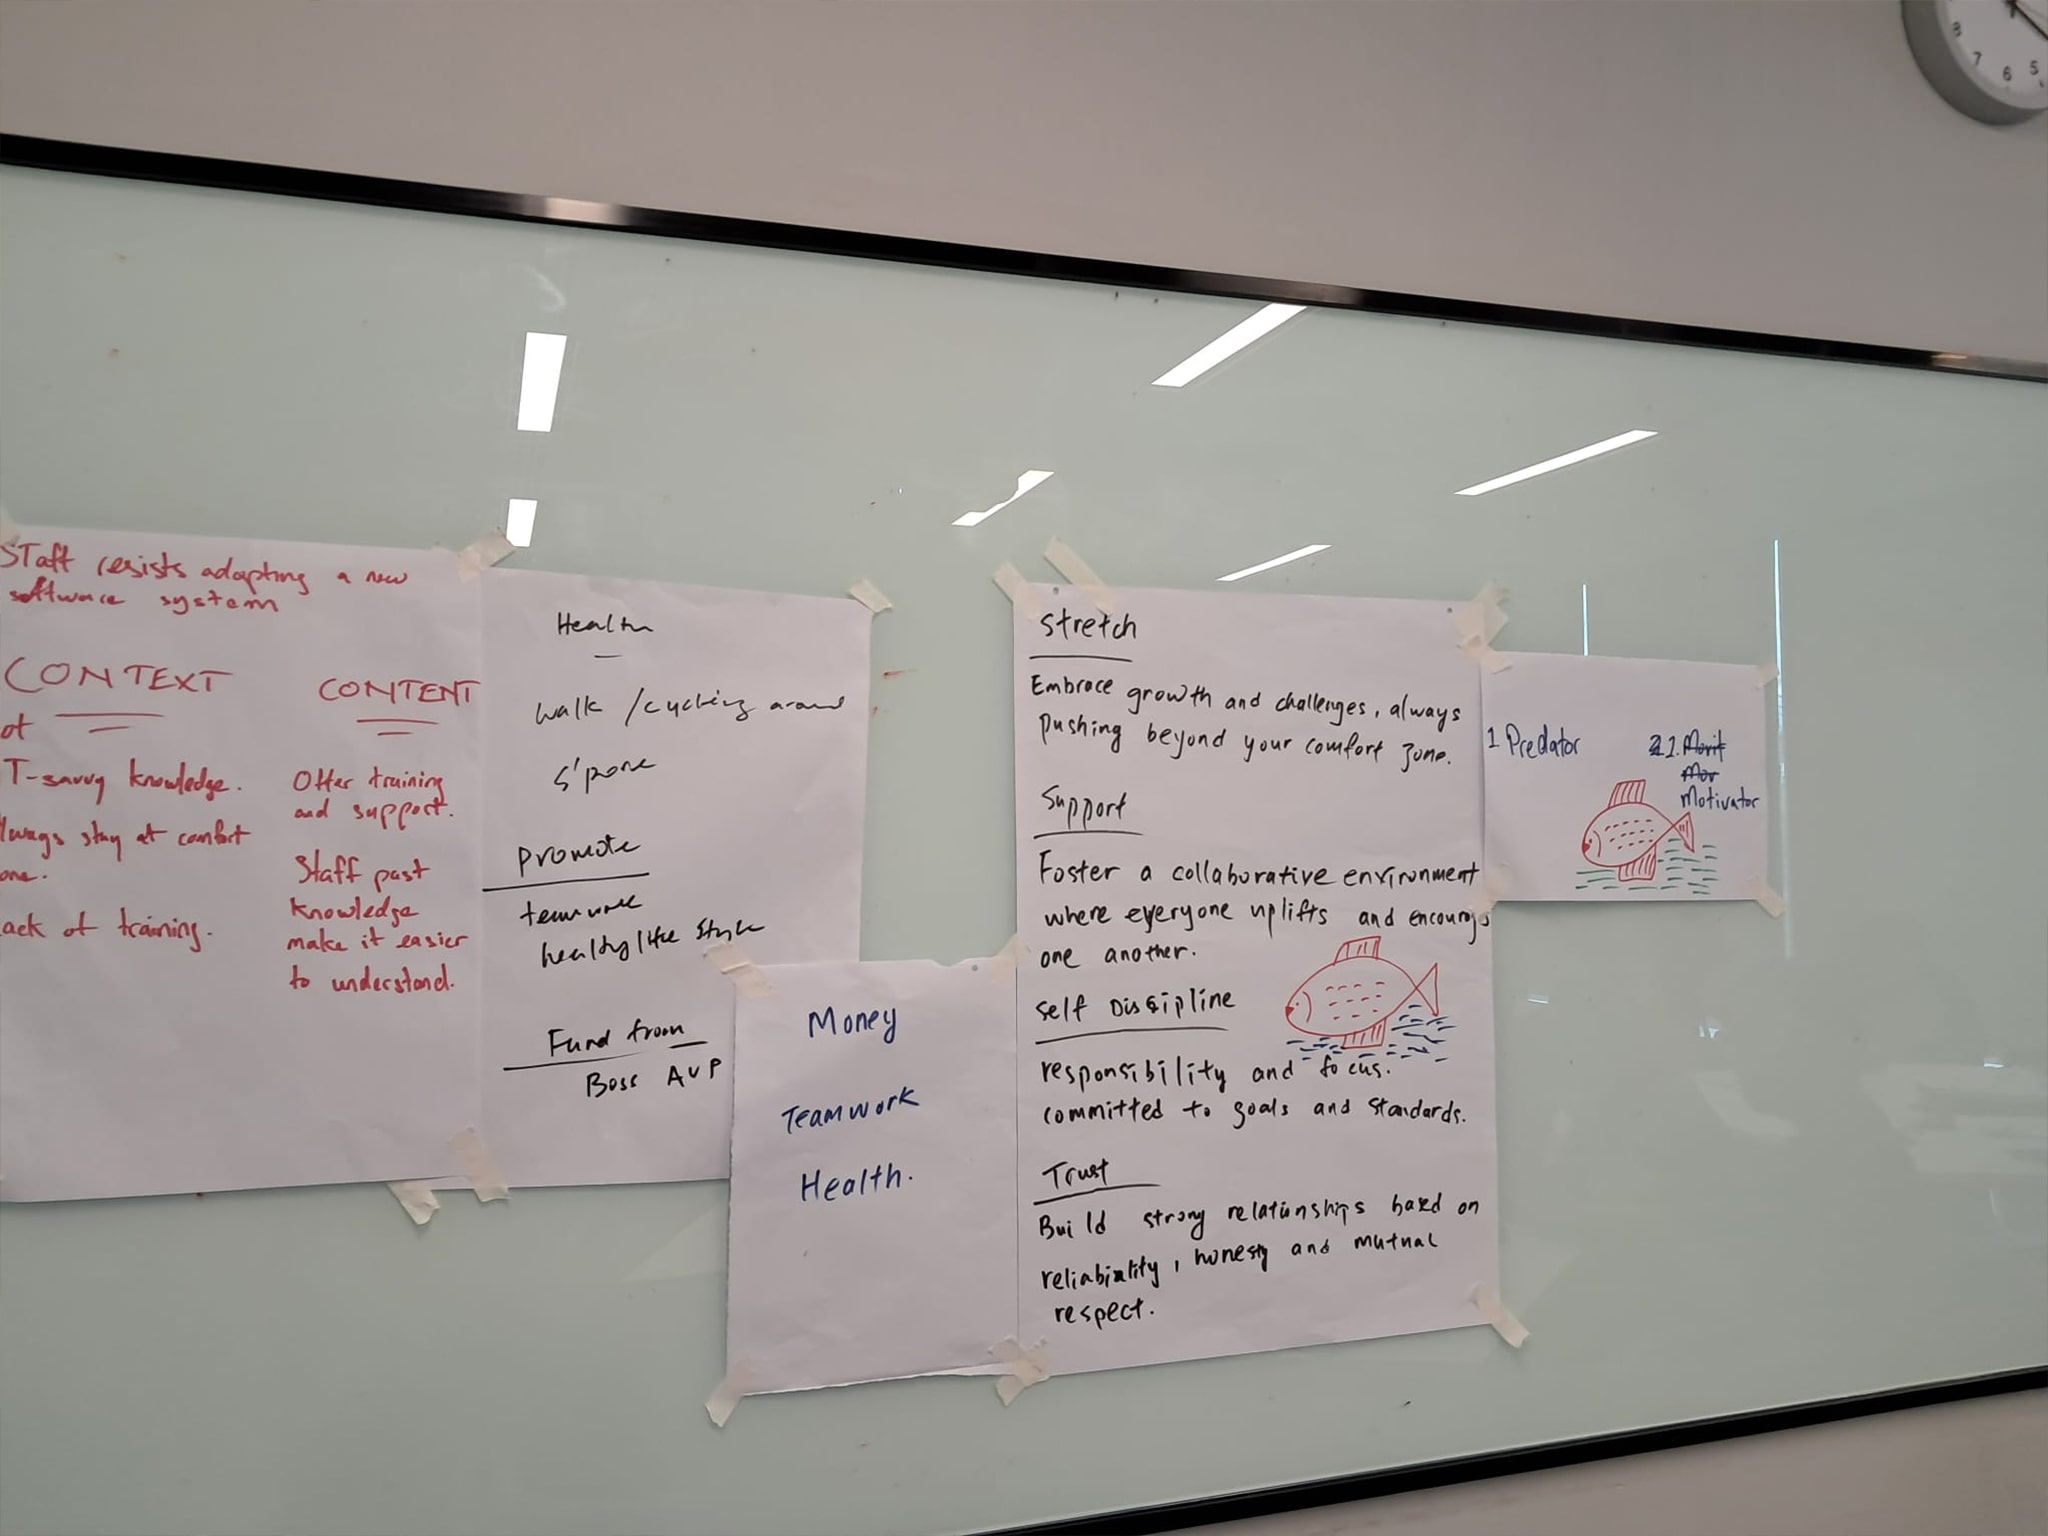 STaff resists adapting a new
software system
CONTEXT
ot
T-savvy knowledge.
lways stay at comfort
one.
ack of training.
CONTENT
Offer training
and support.
Staff past
knowledge
make it easier
to understand.
Health
walk /cycling around
S'pore
promote
teamwork
healthy life style
Fund from
Boss AVP
Money
Teamwork
Health.
Stretch
Embrace growth and challenges, always
pushing beyond your comfort zone.
Support
Foster a collaborative environment
where everyone uplifts and encourags
one another.
Self Discipline
responsibility and focus.
committed to goals and standards.
Trust
Build strong relationships based on
reliability, honesty and mutual
respect.
1 Predator
2 1. Movit
Mov
Motivator
8
7
6
5